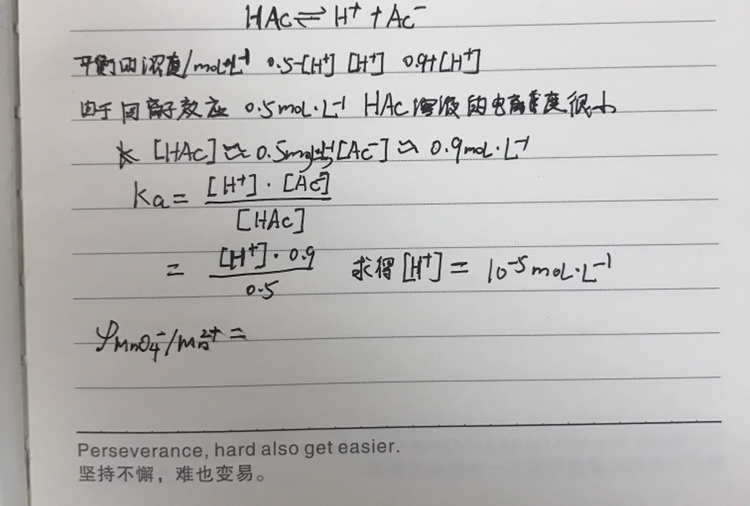 HAc⇌H⁺+Ac⁻
平衡时浓度/mol·L⁻¹ 0.5-[H⁺] [H⁺] 0.9+[H⁺]
由于同离子效应 0.5mol·L⁻¹ HAc溶液的电离度很小
[HAc]≈0.5mol·L⁻¹[Ac⁻]≈0.9mol·L⁻¹
Ka=[H⁺]·[Ac⁻]
[HAc]
=[H⁺]·0.9 求得[H⁺]=10⁻⁵mol·L⁻¹
0.5
φMnO₄⁻/Mn²⁺=
Perseverance, hard also get easier.
坚持不懈，难也变易。